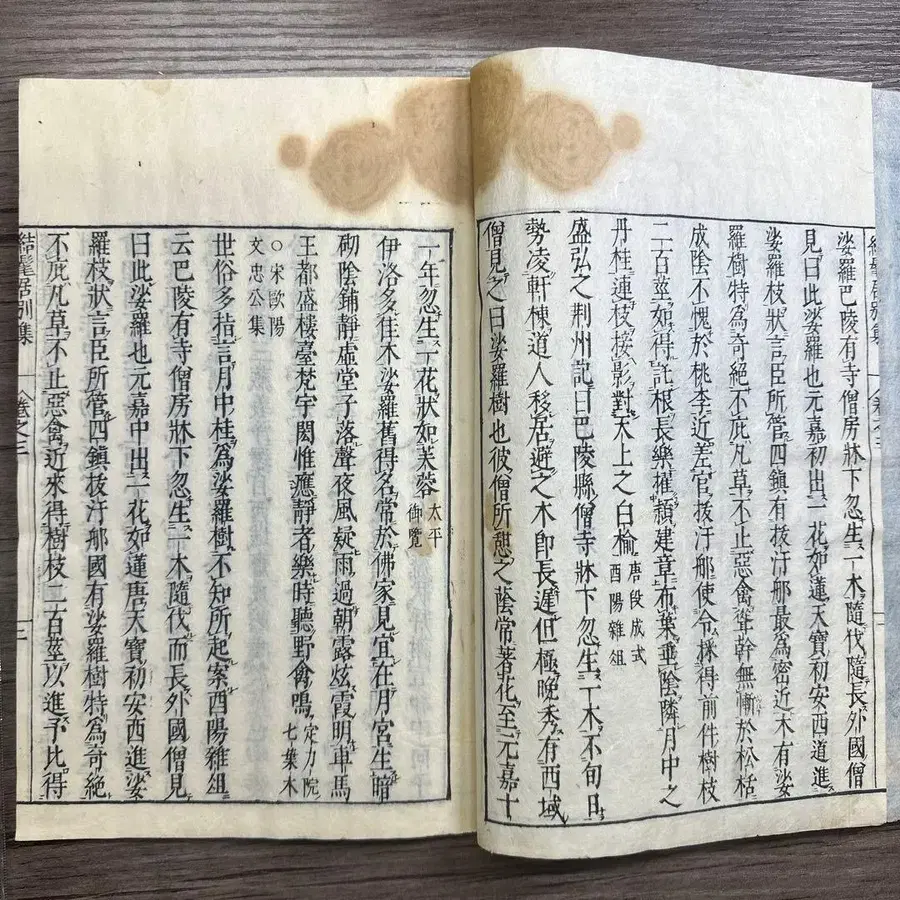 娑羅巴陵有寺僧房牀下忽生一木隨伐隨長外國僧
見曰此娑羅也元嘉初出一花如蓮天寶初安西道進
娑羅枝狀言臣所管四鎮有拔汗郍最為密近木有娑
羅樹特為奇絕不庇凡草不止惡禽耸幹無慚於松栝
成陰不愧於桃李近差官拔汗郍使令採得前件樹枝
二百莖如得託根長樂擢頴建章布葉垂陰隣月中之
丹桂連枝接影對天上之白榆 唐段成式
酉陽雜俎
盛弘之荆州記曰巴陵縣僧寺牀下忽生一木不旬日
勢凌軒棟道人移居避之木即長遲但極晚秀有西域
僧見之曰娑羅樹也彼僧所憩之蔭常著花至元嘉十
一年忽生一花狀如芙蓉 太平
御覽
伊洛多佳木娑羅舊得名常於佛家見宜在月宮生暗
砌陰鋪靜虛堂子落聲夜風疑雨過朝露炫霞明車馬
王都盛樓臺梵宇閎惟應靜者樂時聽野禽鳴 定力院
七葉木
○宋歐陽
文忠公集
世俗多指言月中桂為娑羅樹不知所起案酉陽雜俎
云巴陵有寺僧房牀下忽生一木隨伐而長外國僧見
曰此娑羅也元嘉中出一花如蓮唐天寶初安西進娑
羅枝狀言臣所管四鎮拔汗郍國有娑羅樹特為奇絕
不庇凡草不止惡禽近來得樹枝二百莖以進予比得
結髦居別集
卷之三
三